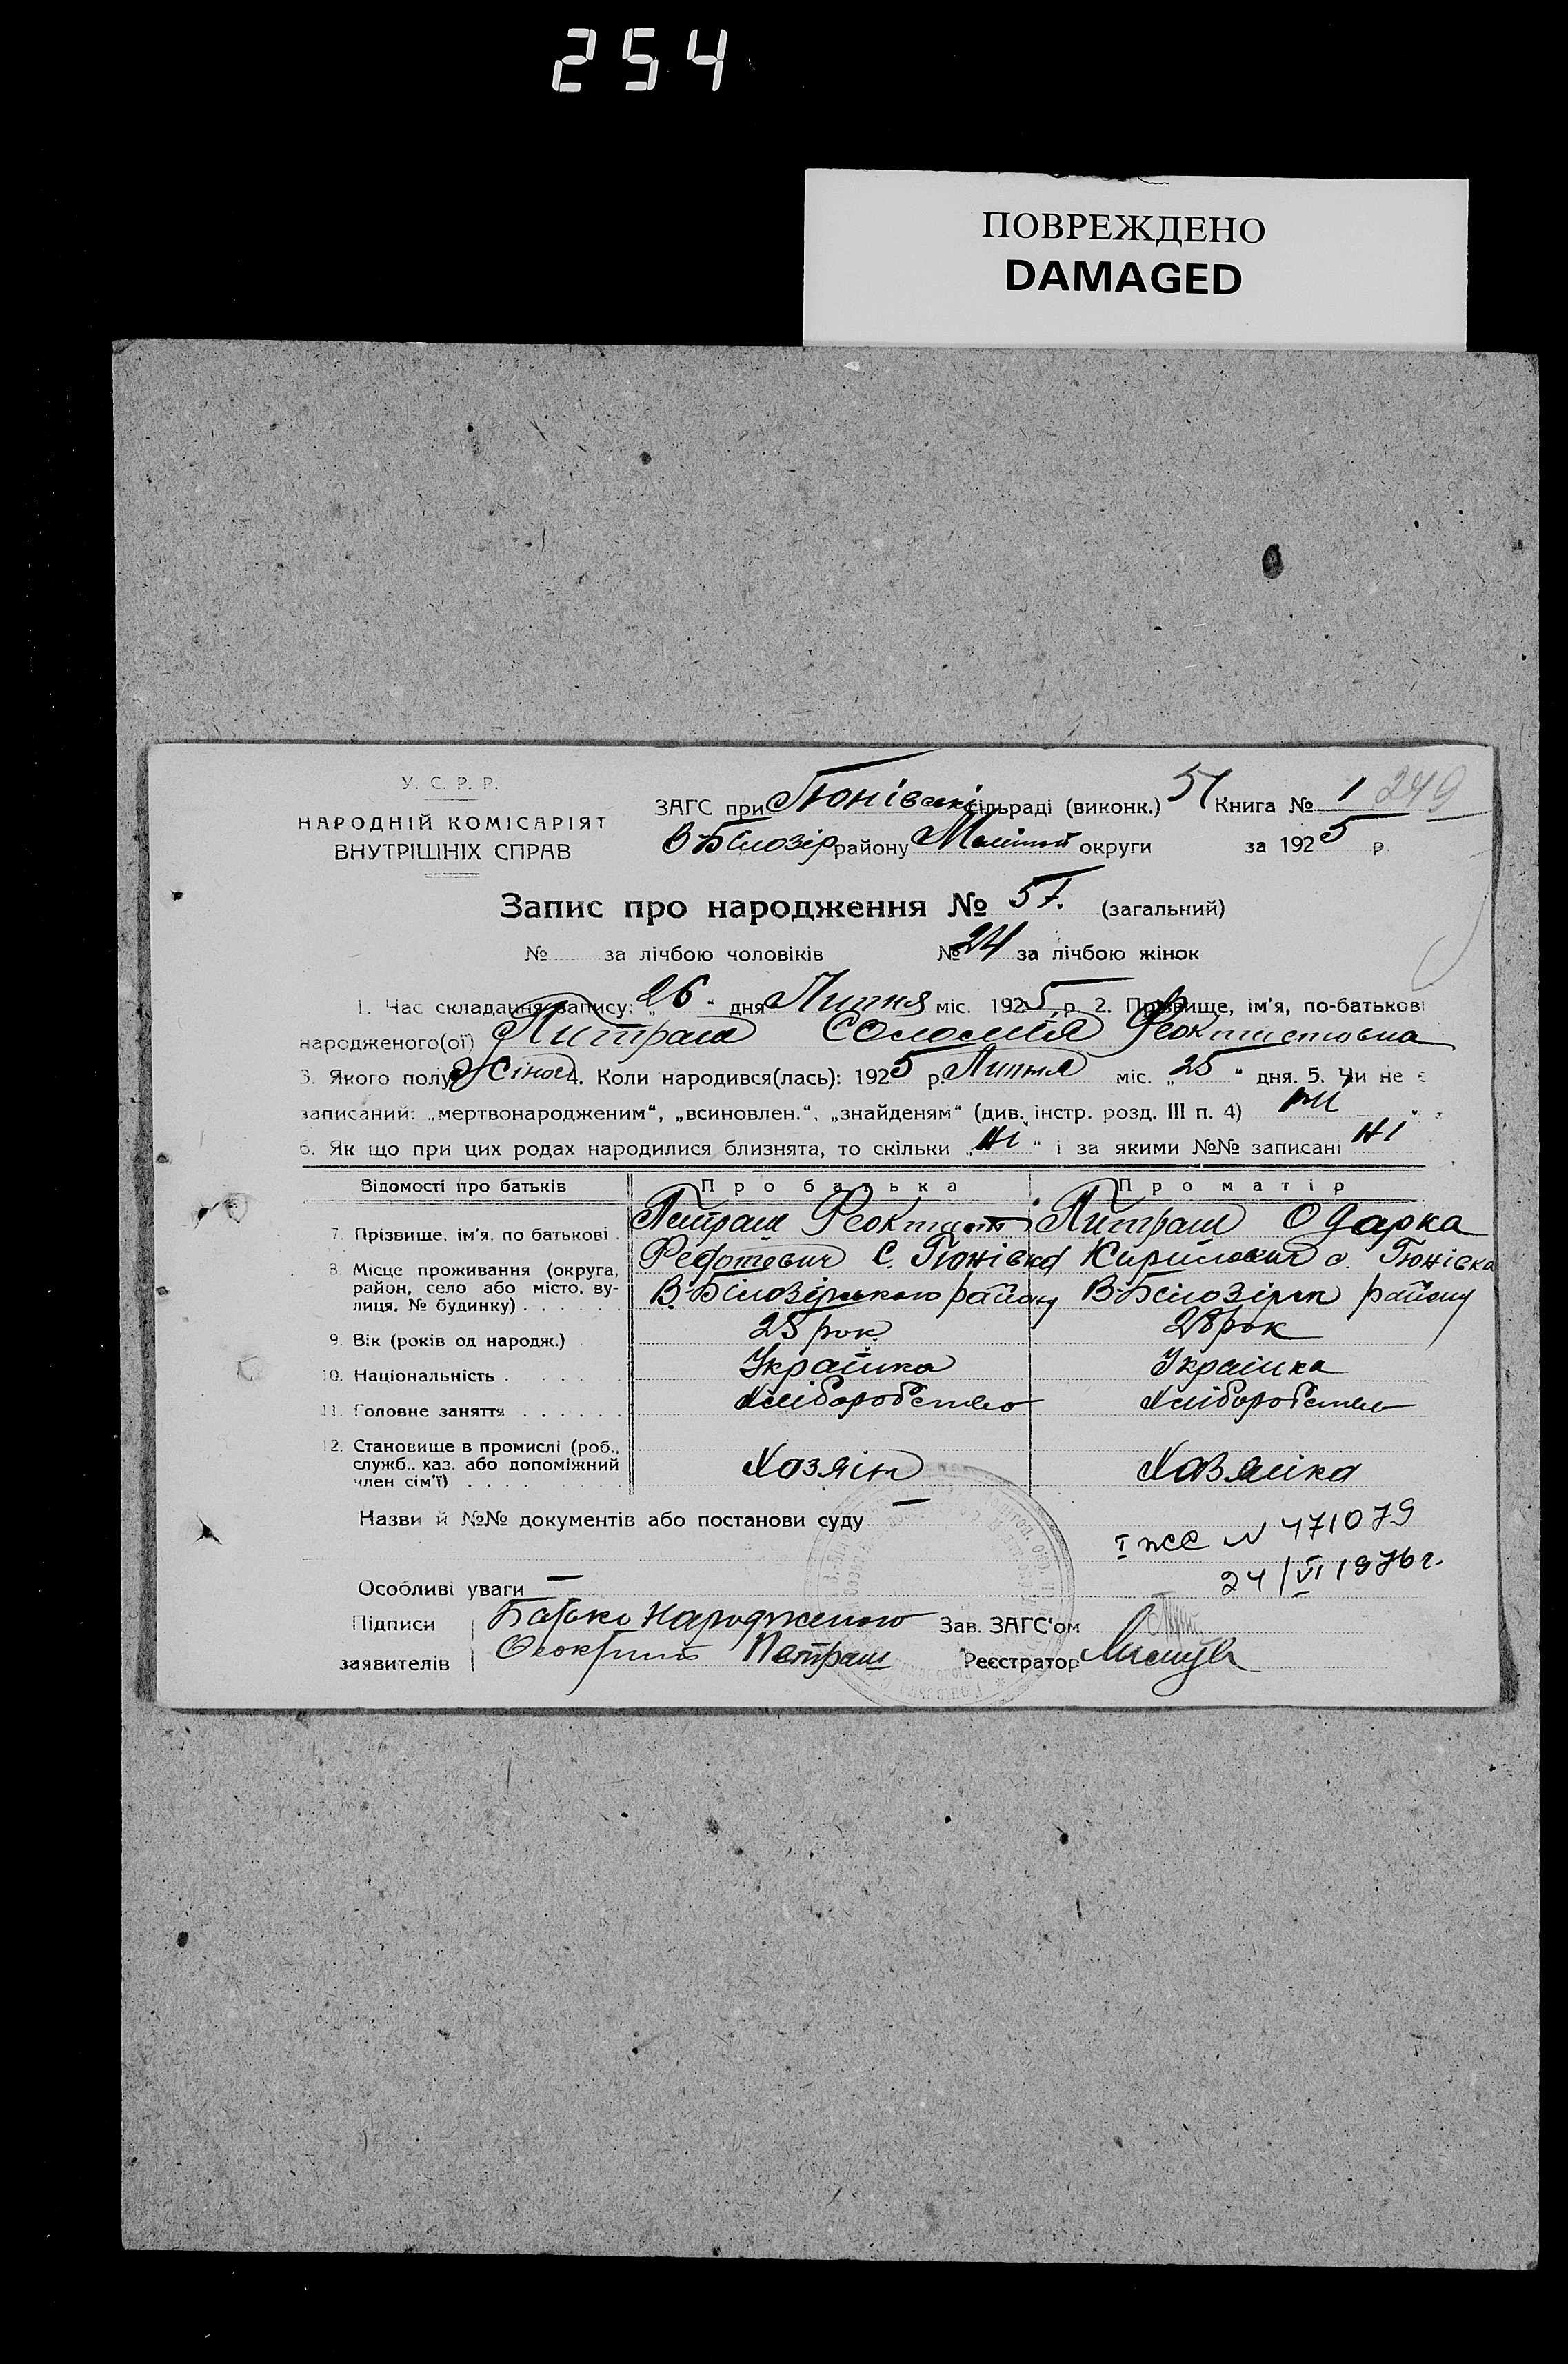 254
ПОВРЕЖДЕНО
DAMAGED
У. С. Р. Р.
НАРОДНІЙ КОМІСАРІЯТ
ВНУТРІШНІХ СПРАВ
ЗАГС при Гюнівські сільраді (виконк.) Книга № 1 249
В-Білозір району округи за 1925 р.
Запис про народження № 57. (загальний)
№ за лічбою чоловіків № 24 за лічбою жінок
1. Час складання запису: „26" дня Липня міс. 1925 р. 2. Прізвище, ім'я, по-батькові
народженого(ої) Питраш Соломія Феоктистовна
3. Якого полу 4. Коли народився(лась): 1925 р. Липня міс. „25" дня. 5. Чи не є
записаний: „мертвонародженим", „всиновлен.", „знайденям" (див. інстр. розд. III п. 4) ні
6. Як що при цих родах народилися близнята, то скільки „Ні" і за якими №№ записані Ні
Відомості про батьків Про батька Про матір
7. Прізвище, ім'я, по батькові . Питраш Феоктист Питраш Одарка
8. Місце проживання (округа, район, село або місто, вулиця, № будинку) . . . . . Федотович С. Гюнівка Кириловна с. Гюнівка
В.Білозірського району В-Білозірск району
9. Вік (років од народж.) 25 рок. 28 рок
10. Національність . . . . . Українка Українка
11. Головне заняття . . . . . . Хліборобство Хліборобство
12. Становище в промислі (роб., служб., каз. або допоміжний член сім'ї) . . . . Хозяін Хазяйка
Назви й №№ документів або постанови суду —
I ЖС N 471079
24/VI 1976г.
Особливі уваги —
Підписи Батько Народженого Зав. ЗАГС'ом
заявителів Феоктист Петраш Реєстратор